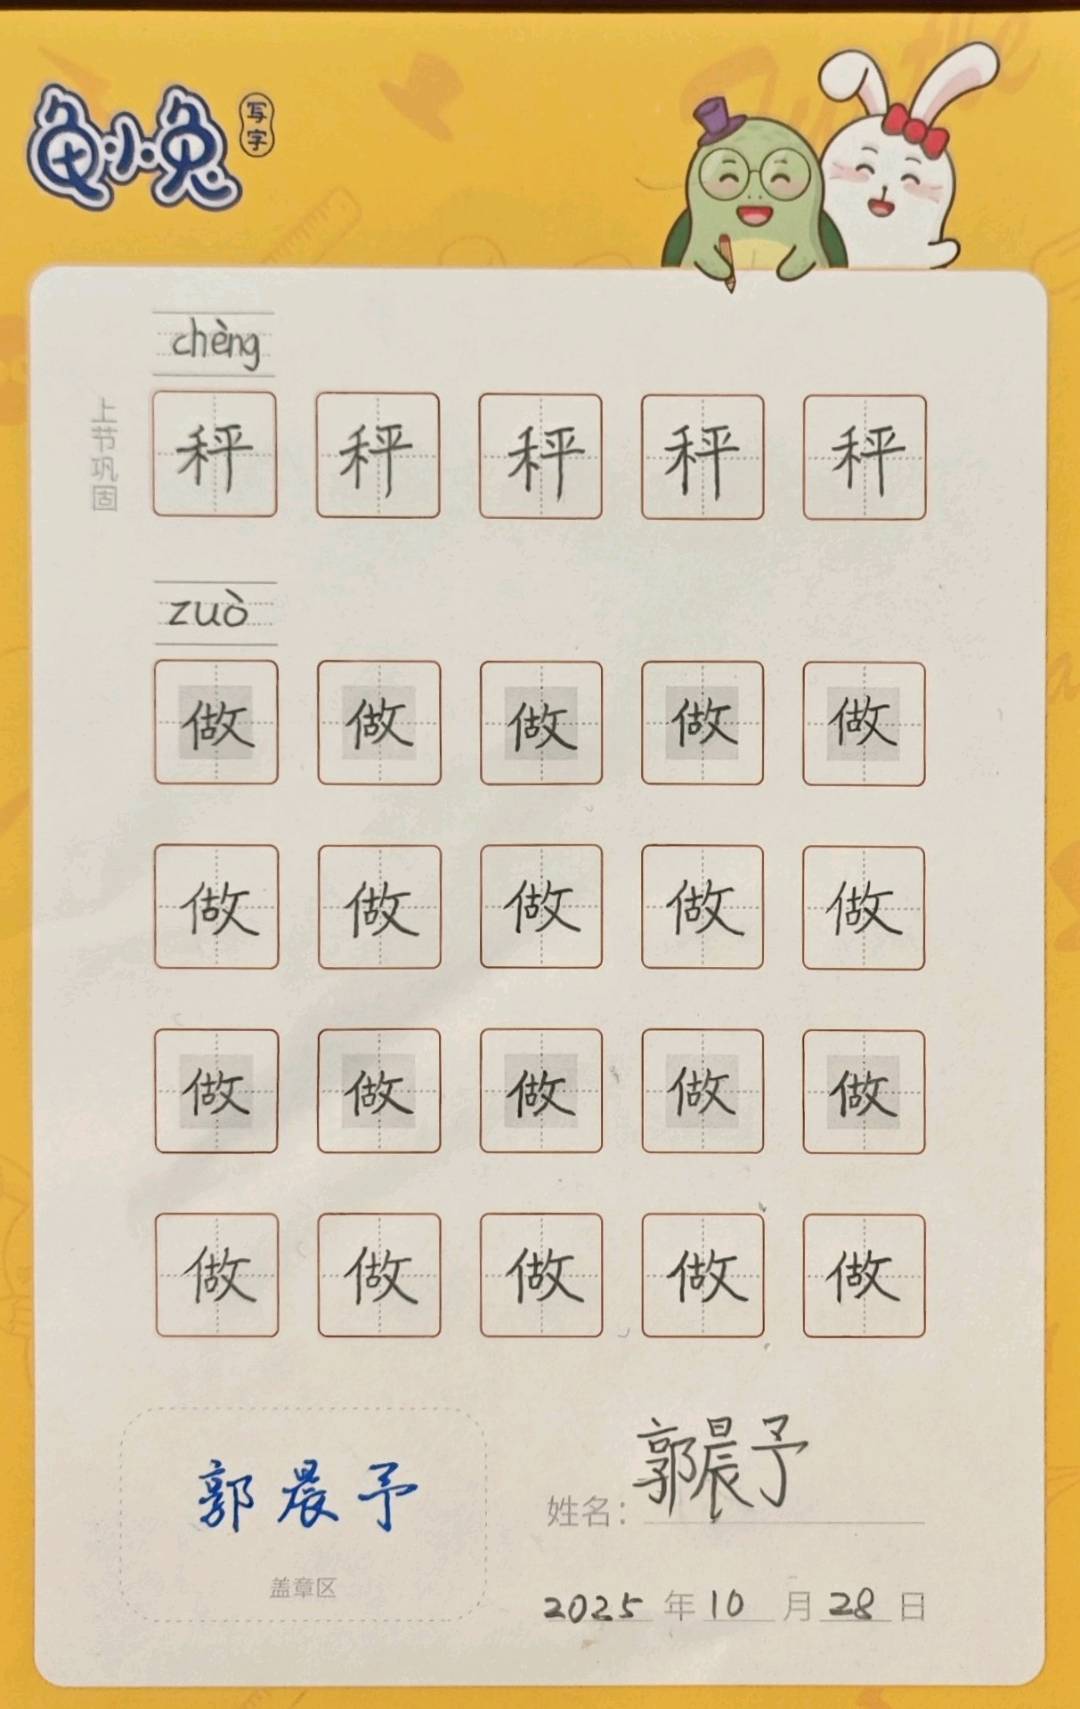 龟小兔 写字
chèng
上节巩固
秤 秤 秤 秤 秤
zuò
做 做 做 做 做
做 做 做 做 做
做 做 做 做 做
做 做 做 做 做
郭晨予
盖章区
姓名：郭晨予
2025年10月28日